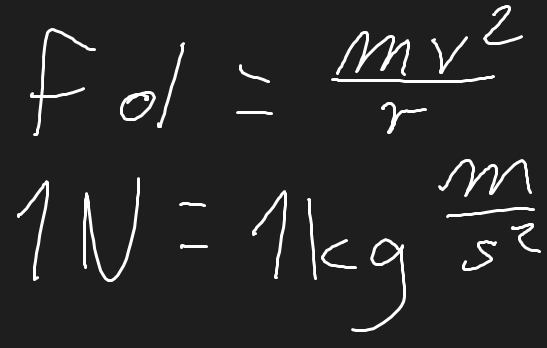 Fd = mv²/r
1N = 1kg m/s²